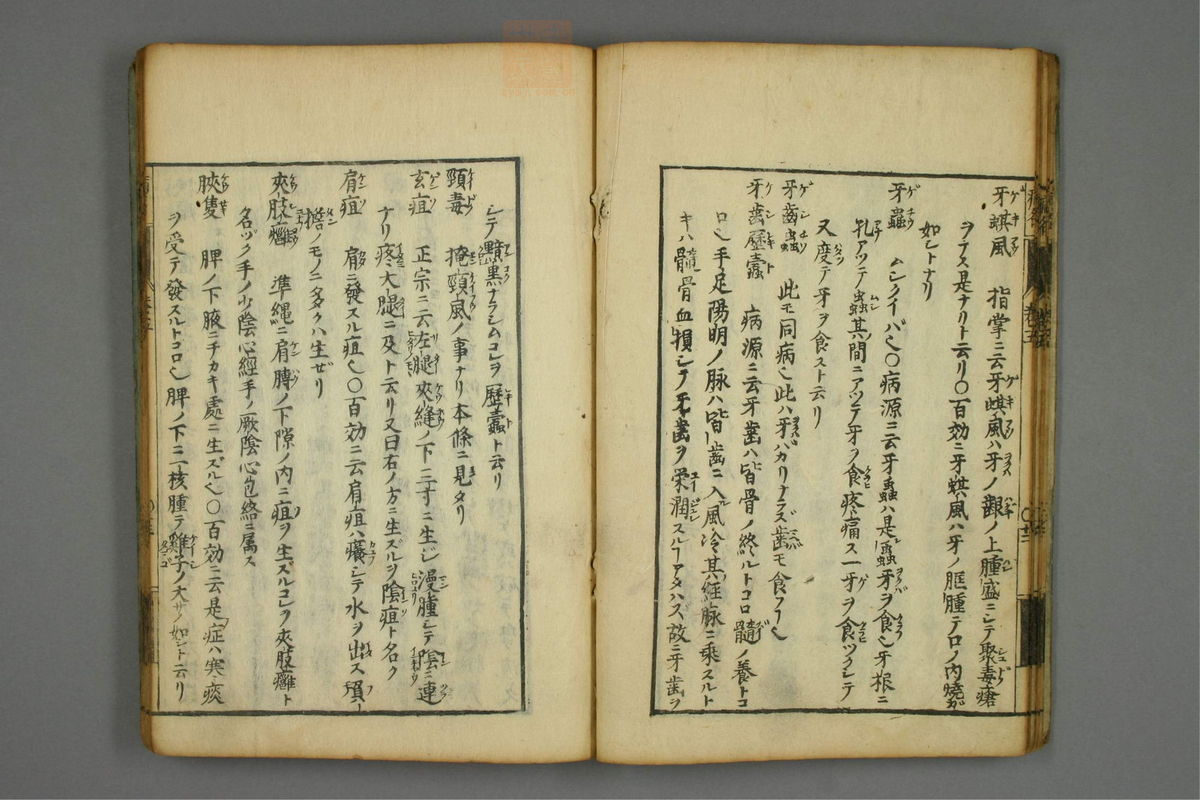 牙蜞風　指掌ニ云牙蜞風ハ牙ノ齦ノ上腫盛ニシテ聚毒瘡
ヲナス是ナリト云リ〇百効ニ牙蜞風ハ牙ノ腫テ口ノ内焼ガ
如シトナリ
牙蟲　ムシクイバ也〇病源ニ云牙蟲ハ是蟲牙ヲ食也牙根ニ
孔アツテ蟲其間ニアツテ牙ヲ食疼痛ス一牙ヲ食ツクシテ
又度テ牙ヲ食スト云リ
牙齒蟲　此モ同病也此ハ牙ハカリナラズ歯モ食フ也
牙齒歴蠹　病源ニ云牙歯ハ皆骨ノ終ルトコロ髓ノ養トコ
ロ也手足陽明ノ脉ハ皆歯ニ入風冷其經脉ニ乘スルト
キハ髓骨血損シテ牙歯ヲ榮潤スルヿアタハズ故ニ牙歯ヲ
シテ黯黒ナラシムコレヲ歴蠹ト云リ
頸毒　掩頸風ノ事ナリ本條ニ見タリ
玄疽　正宗ニ云左腿夾縫ノ下三寸ニ生ジ漫腫シテ陰ニ連
ナリ疼大腿ニ及ト云リ又曰右ノ方ニ生ズルヲ陰疽ト名ク
肩疽　肩ニ發スル疽也〇百効ニ云肩疽ハ癢シテ水ヲ出ス
夾肢癰　準縄ニ肩膊ノ下隙ノ内ニ疽ヲ生ズルコレヲ夾肢癰ト
名ツク手ノ少陰心經手ノ厥陰心包絡ニ属ス
脾ノ下腋ニチカキ處ニ生ズル也〇百効ニ云是症ハ寒痰
ヲ受テ發スルトコロ也脾ノ下ニ一核腫テ雞子ノ大サノ如シト云リ